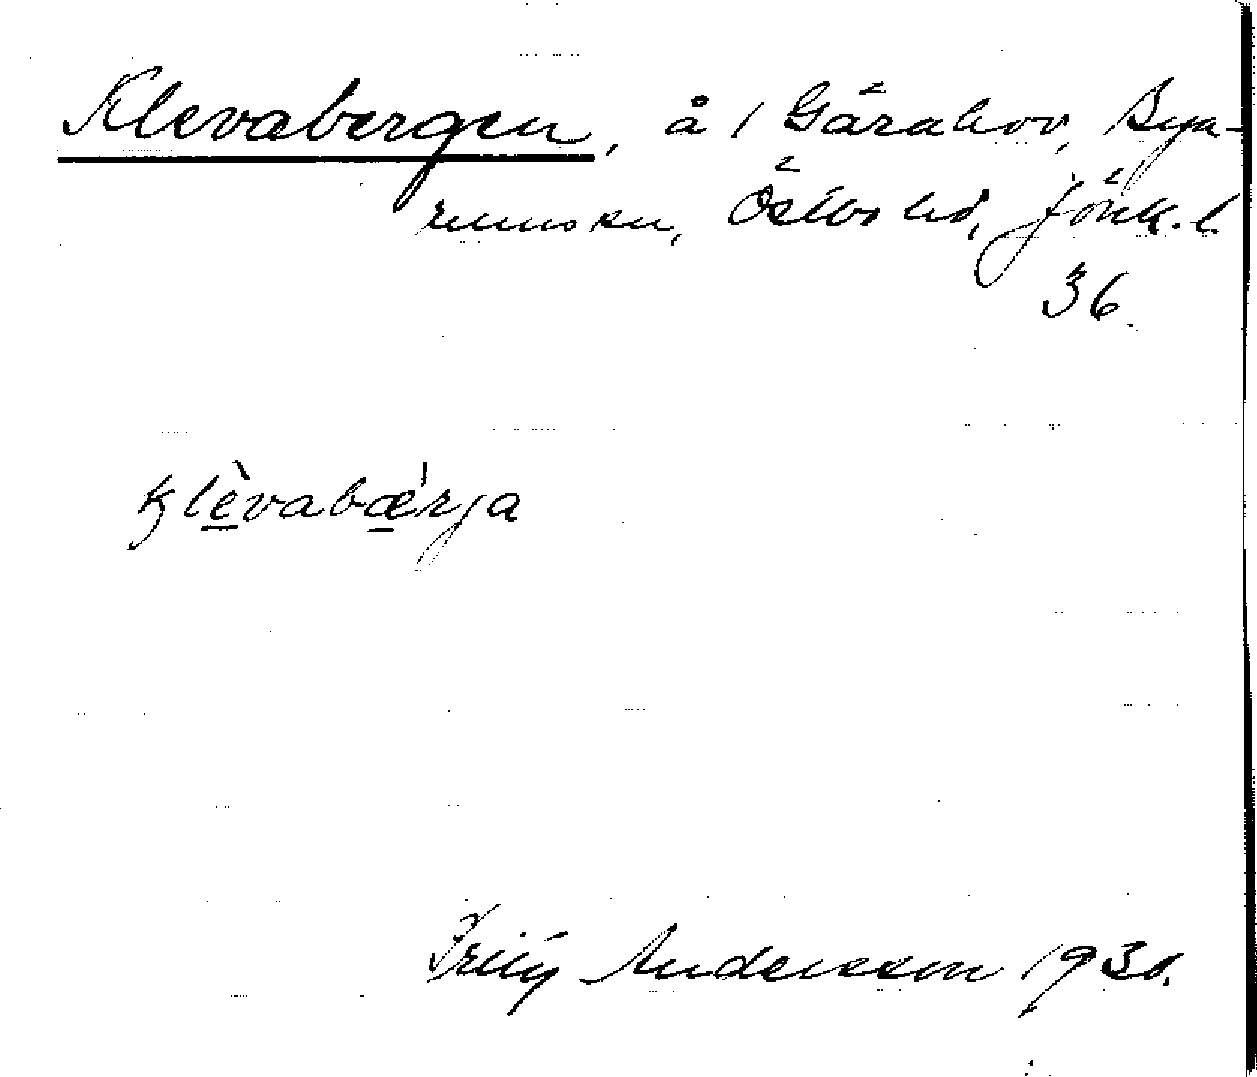 Klevabergen, å 1 Gårahov, Bya-
rums sn, Östbo hd, Jönk. l.
36.
Klèvabǽrja
Andersson 1930.